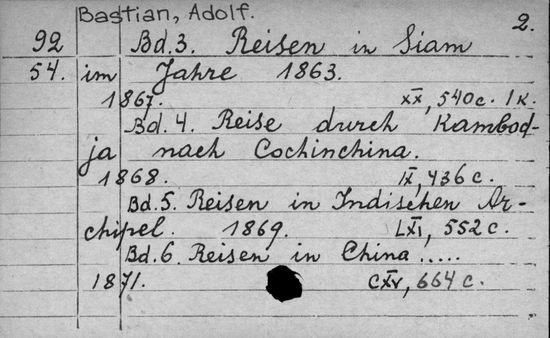 Bastian, Adolf.
2.
92 Bd.3. Reisen in Siam
54. im Jahre 1863.
1867. XX, 540c. 1 K.
Bd. 4. Reise durch Kambod-
ja nach Cochinchina.
1868. IX, 436 c.
Bd.5. Reisen in Indischen Ar-
chipel. 1869. LXI, 552 c.
Bd.6. Reisen in China.....
1871. CXV, 664 c.